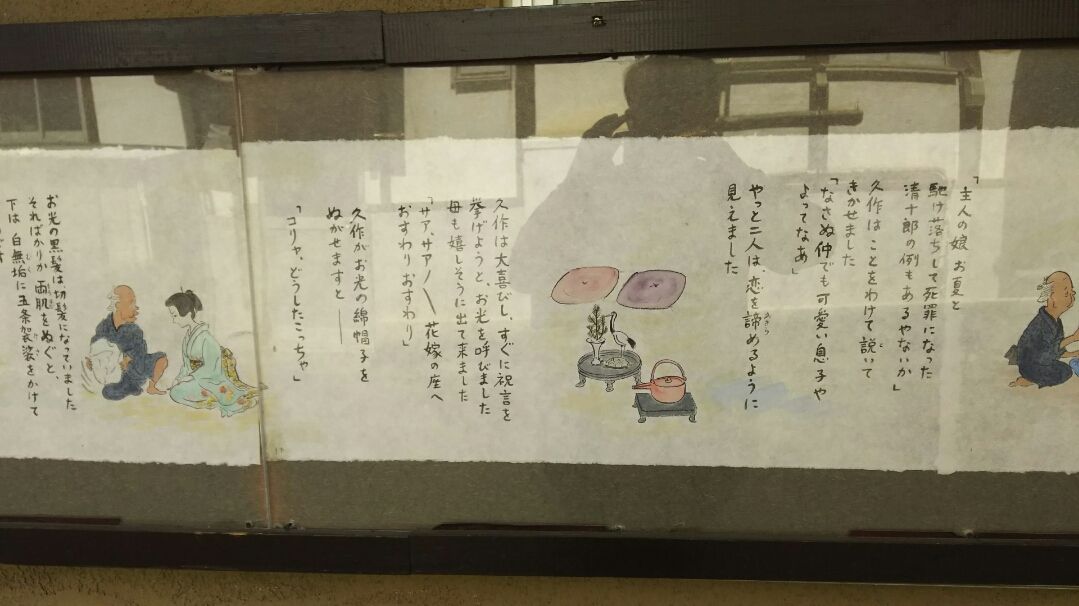 「主人の娘 お夏と
駈け落ちして死罪になった
清十郎の例もあるやないか」
久作はことをわけて説いて
きかせました
「なさぬ仲でも可愛い息子や
よってなあ」
やっと二人は恋を諦めるように
見えました
久作は大喜びし、すぐに祝言を
挙げようと、お光を呼びました
母も嬉しそうに出て来ました
「サア、サアノ＼ 花嫁の座へ
おすわり おすわり」
久作がお光の綿帽子を
ぬがせますと――
「コリャ、どうしたこっちゃ」
お光の黒髪は切髪になっていました
そればかりか 両肌をぬぐと
下は 白無垢に五条袈裟をかけて